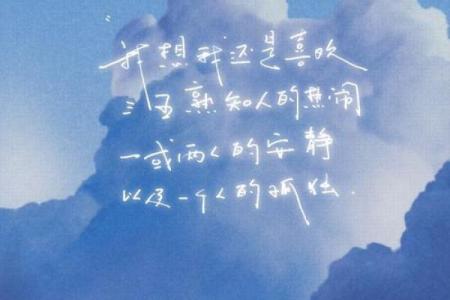 “我想我还是喜欢
三五熟知人的热闹
一或两人的安静
以及一个人的孤独.